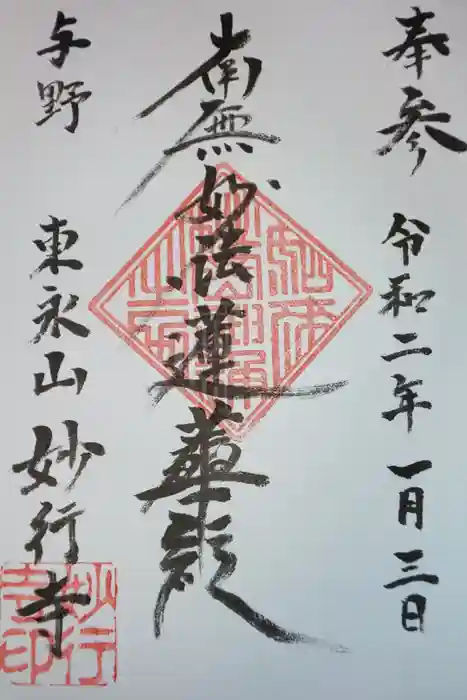 奉参 令和二年 一月三日
南無妙法蓮華経
与野 東永山 妙行寺
妙行寺印